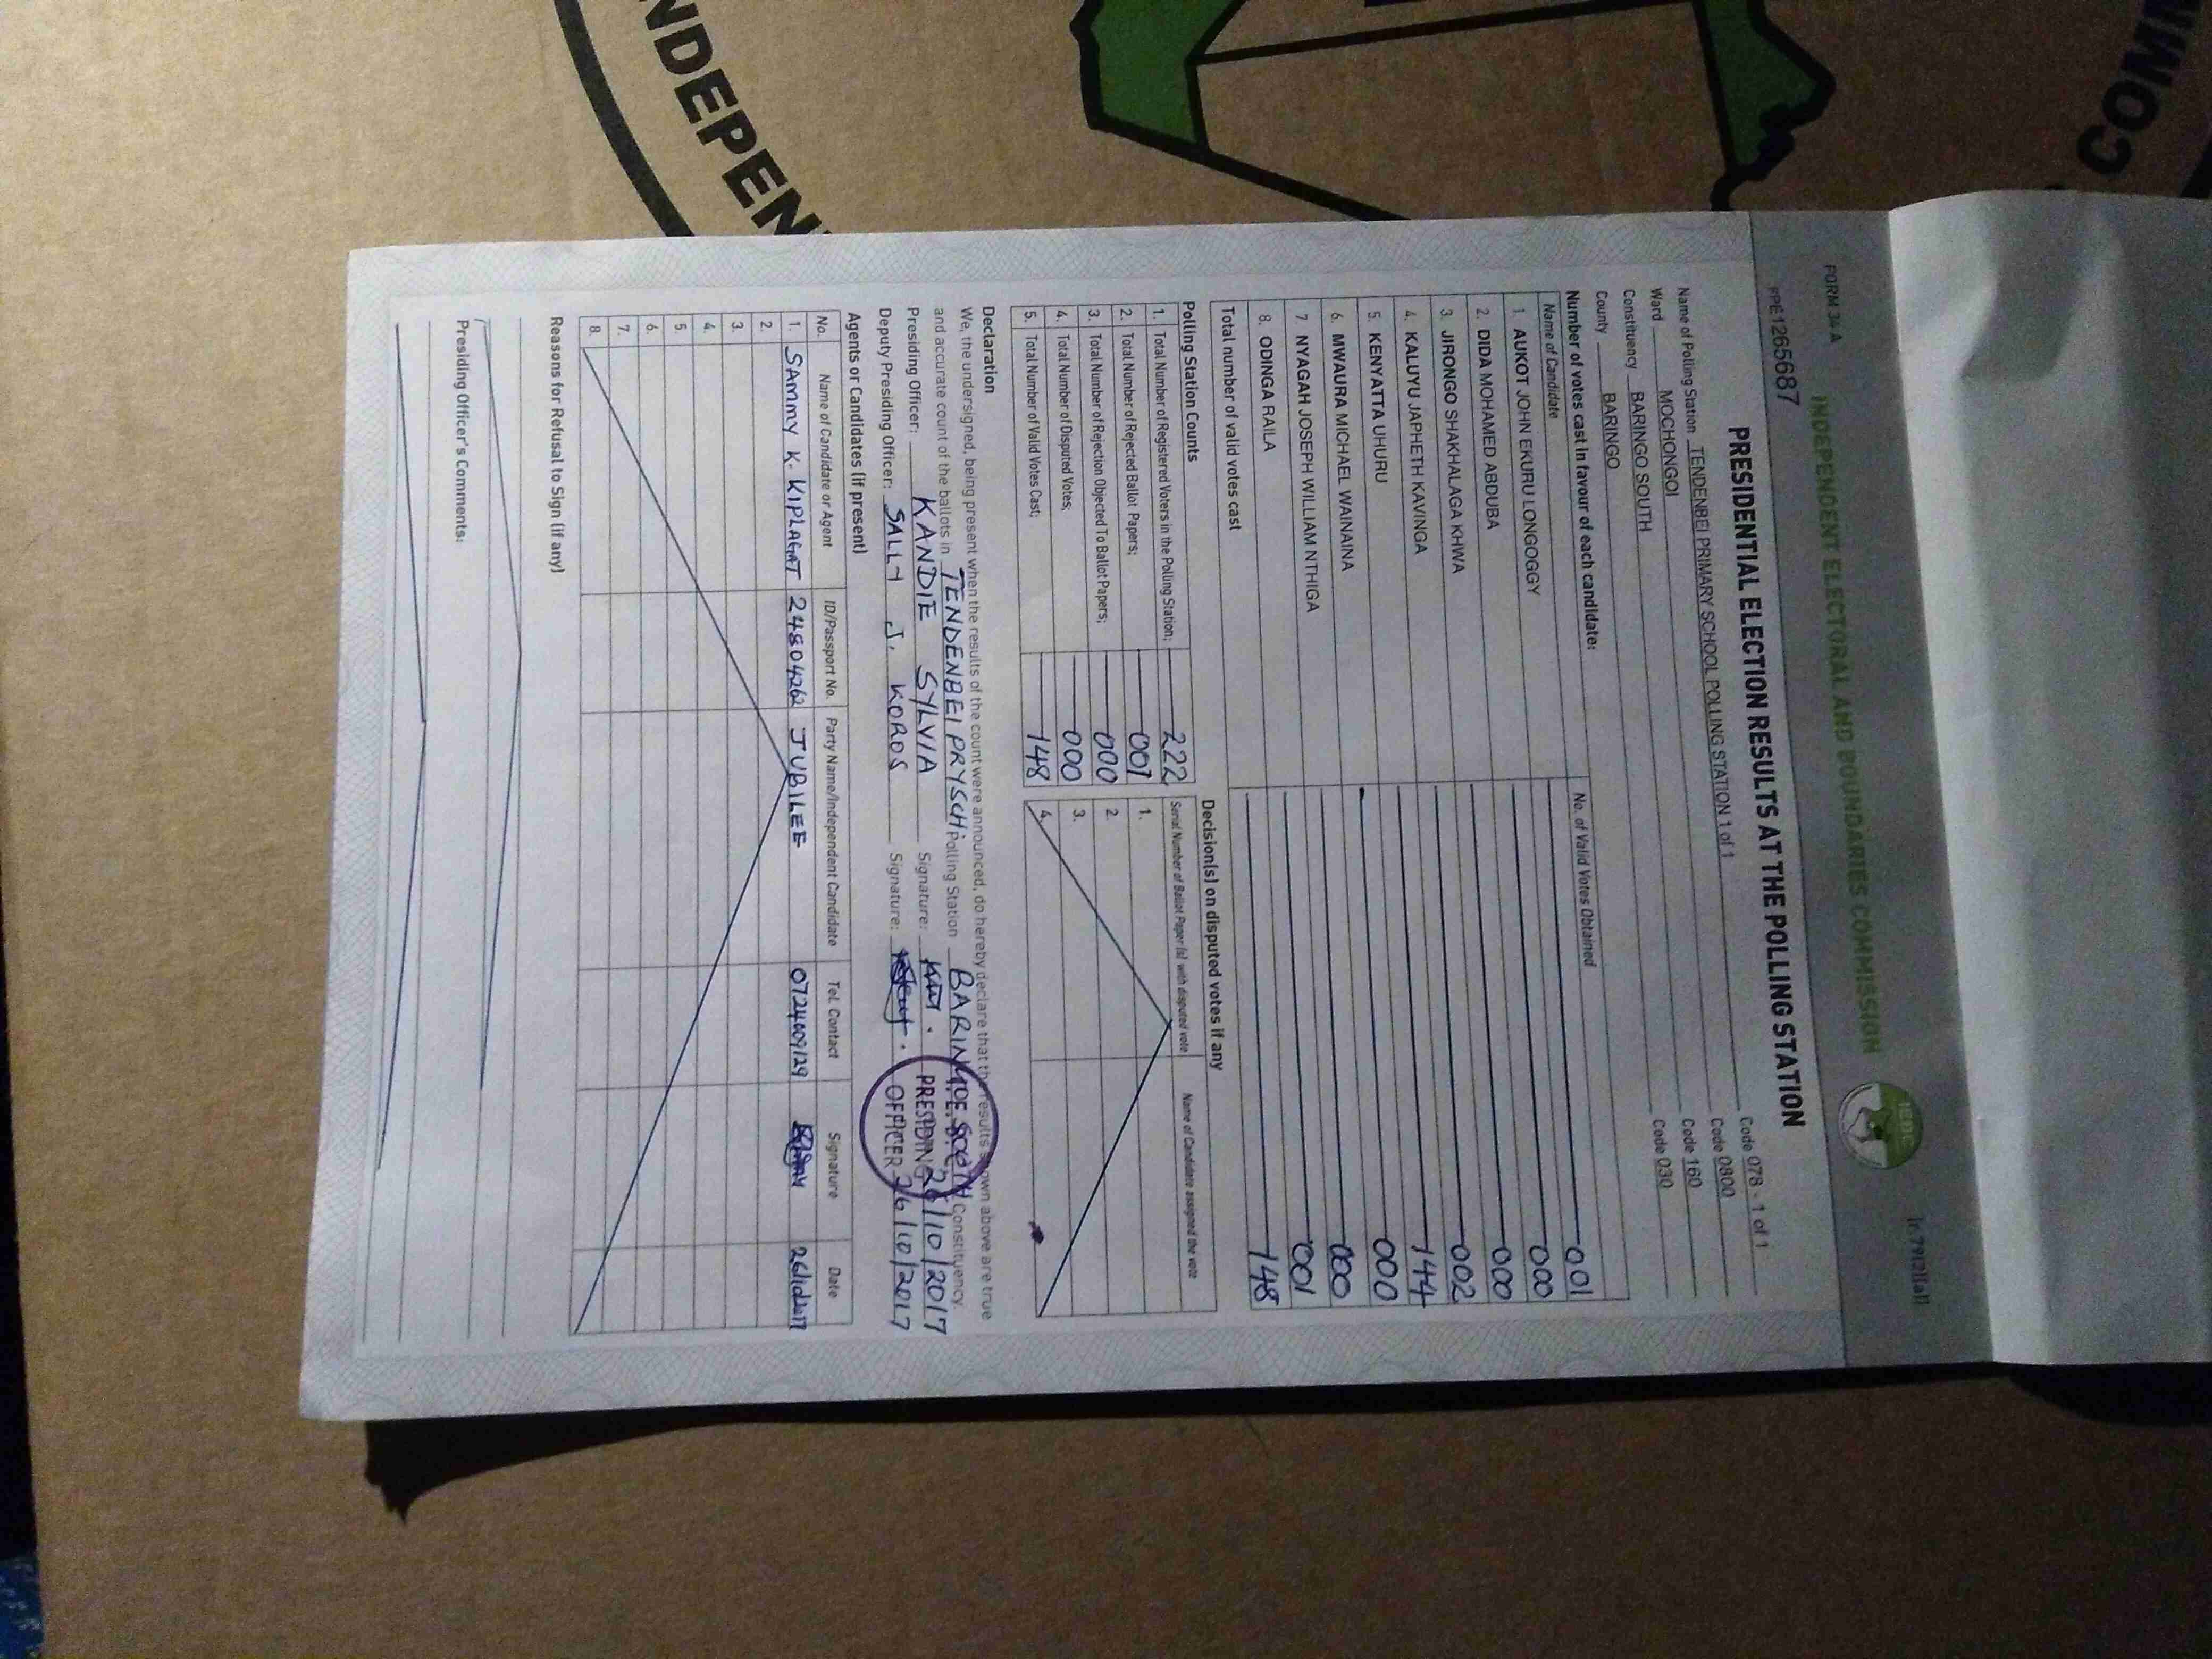 NDEPEN
COMM
FORM 34 A
INDEPENDENT ELECTORAL AND BOUNDARIES COMMISSION
(r.79(2)(a))
IEBC
PPE1265687
PRESIDENTIAL ELECTION RESULTS AT THE POLLING STATION
Name of Polling Station TENDENBEI PRIMARY SCHOOL POLLING STATION 1 of 1 Code 078 - 1 of 1
Ward MOCHONGOI Code 0800
Constituency BARINGO SOUTH Code 160
County BARINGO Code 030
Number of votes cast in favour of each candidate:
Name of Candidate No. of Valid Votes Obtained
1. AUKOT JOHN EKURU LONGOGGY 001
2. DIDA MOHAMED ABDUBA 000
3. JIRONGO SHAKHALAGA KHWA 000
4. KALUYU JAPHETH KAVINGA 002
5. KENYATTA UHURU 144
6. MWAURA MICHAEL WAINAINA 000
7. NYAGAH JOSEPH WILLIAM NTHIGA 000
8. ODINGA RAILA 001
Total number of valid votes cast 148
Polling Station Counts
1. Total Number of Registered Voters in the Polling Station; 222
2. Total Number of Rejected Ballot Papers; 001
3. Total Number of Rejection Objected To Ballot Papers; 000
4. Total Number of Disputed Votes; 000
5. Total Number of Valid Votes Cast; 148
Decision(s) on disputed votes if any
Serial Number of Ballot Paper (s) with disputed vote Name of Candidate assigned the vote
1.
2.
3.
4.
Declaration
We, the undersigned, being present when the results of the count were announced, do hereby declare that the results shown above are true
and accurate count of the ballots in TENDENBEI PRY SCH Polling Station BARINGO SOUTH Constituency.
Presiding Officer: KANDIE SYLVIA Signature: 26/10/2017
Deputy Presiding Officer: SALLY J. KOROS Signature: 26/10/2017
PRESIDING
OFFICER
Agents or Candidates (if present)
No. Name of Candidate or Agent ID/Passport No. Party Name/Independent Candidate Tel. Contact Signature Date
1. SAMMY K. KIPLAGAT 24804262 JUBILEE 0724009129
2.
3.
4.
5.
6.
7.
8.
Reasons for Refusal to Sign (if any)
Presiding Officer's Comments: